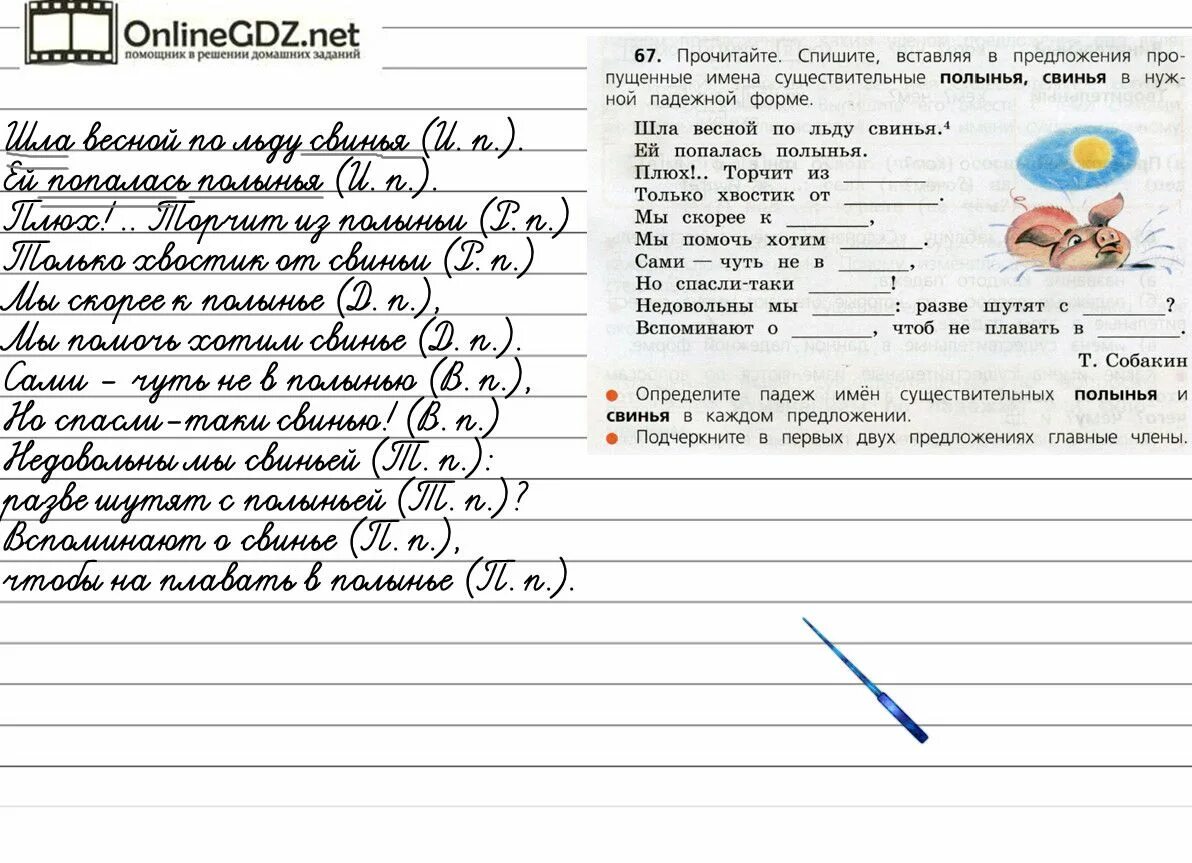 OnlineGDZ.net
помощник в решении домашних заданий
Шла весной по льду свинья (И. п.).
Ей попалась полынья (И. п.).
Плюх! .. Торчит из полыньи (Р. п.)
Только хвостик от свиньи (Р. п.)
Мы скорее к полынье (Д. п.),
Мы помочь хотим свинье (Д. п.).
Сами - чуть не в полынью (В. п.),
Но спасли-таки свинью! (В. п.)
Недовольны мы свиньей (Т. п.):
разве шутят с полыньей (Т. п.)?
Вспоминают о свинье (П. п.),
чтобы на плавать в полынье (П. п.).
67. Прочитайте. Спишите, вставляя в предложения про-
пущенные имена существительные полынья, свинья в нуж-
ной падежной форме.
Шла весной по льду свинья.⁴
Ей попалась полынья.
Плюх!.. Торчит из ______
Только хвостик от ______.
Мы скорее к ______,
Мы помочь хотим ______.
Сами — чуть не в ______,
Но спасли-таки ______!
Недовольны мы ______: разве шутят с ______?
Вспоминают о ______, чтоб не плавать в ______.
Т. Собакин
● Определите падеж имён существительных полынья и
свинья в каждом предложении.
● Подчеркните в первых двух предложениях главные члены.